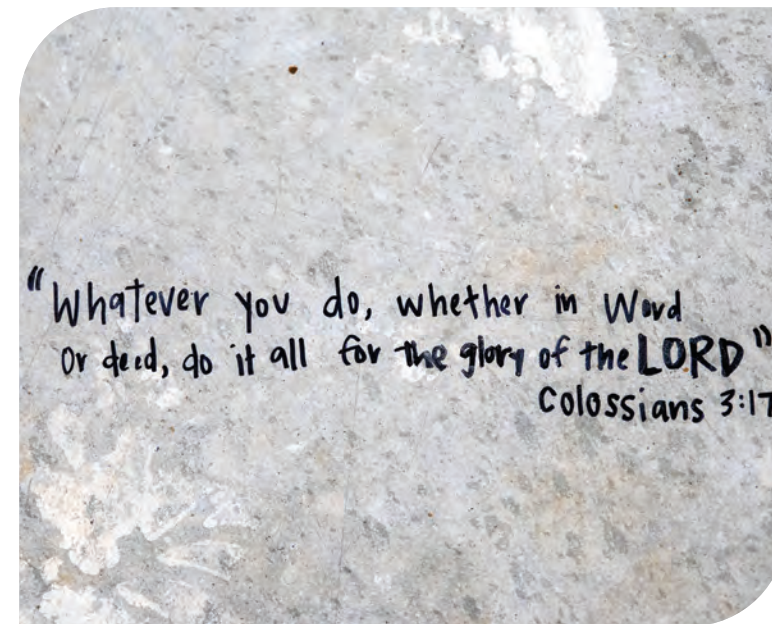 "Whatever you do, whether in Word
Or deed, do it all for the glory of the LORD"
Colossians 3:17